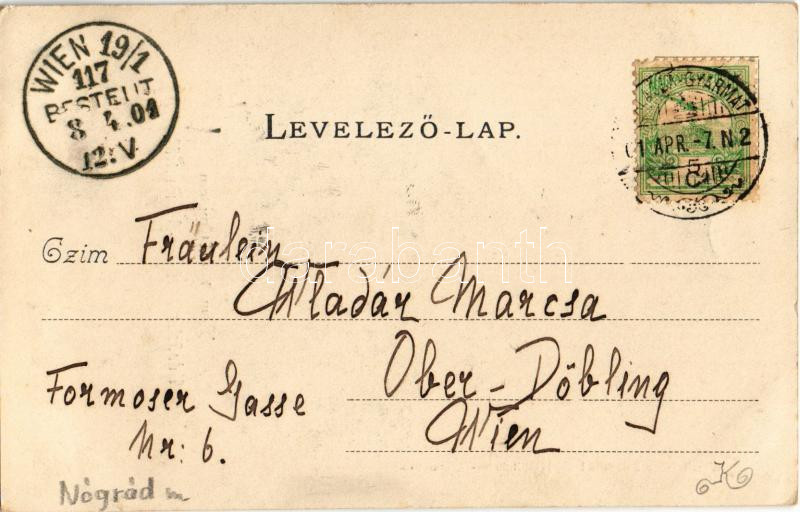 WIEN 19/1
117
BESTELLT
8 4.01
12.V
LEVELEZŐ-LAP.
GYARMAT
01 APR.-7.N2
5
Czim Fräulein
Wladár Marcsa
Ober-Döbling
Formoser Gasse
Wien
Nr: 6.
Nógrád m
K
darabanth